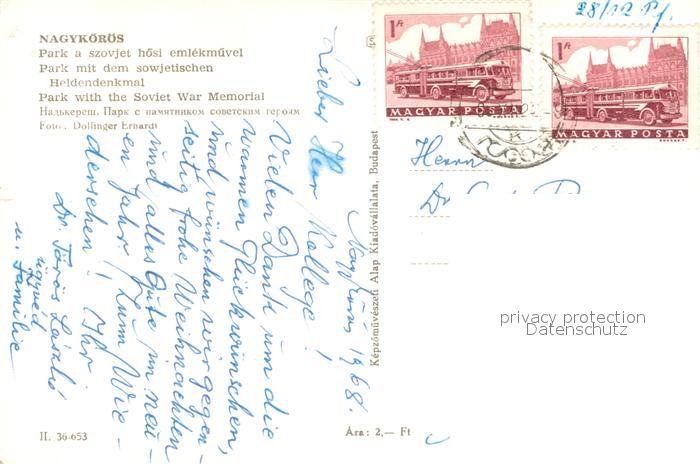 NAGYKŐRÖS
Park a szovjet hősi emlékművel
Park mit dem sowjetischen
Heldendenkmal
Park with the Soviet War Memorial
Надькереш. Парк с памятником советским героям
Foto: Dollinger Erhardt
28/12
1Ft
MAGYAR POSTA
1Ft
MAGYAR POSTA
Nagykőrös 1968.
Lieber Herr Kollege!
Vielen Dank um die
warmen Glückwünschen,
und wünschen wir gegen-
seitig frohe Weihnachten
und alles Gute im neu-
en Jahr! Zum Wie-
dersehen! Ihr
Dr. Törös László
ügyvéd
u. Familie
Képzőművészeti Alap Kiadóvállalata, Budapest
Herrn
Dr
privacy protection
Datenschutz
II. 36-653
Ára: 2,— Ft